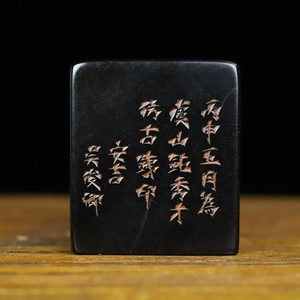 丙申五月為
虞山純秀才
仿古銕印
安吉
吳俊卿